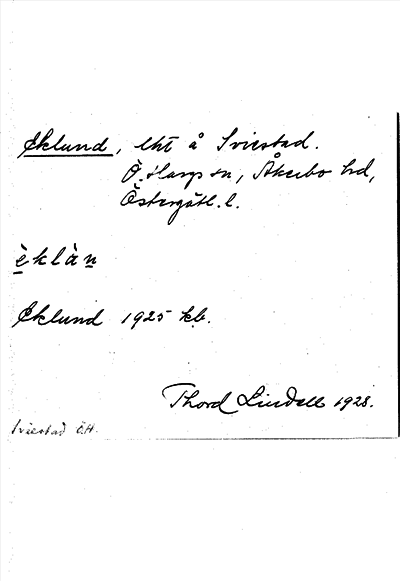 Eklund, lht å Sviestad.
Ö. Harg sn, Åkerbo hd,
Östergötl. l.
èklàn
Eklund 1925 kb.
Thord Lindell 1928.
Sviestad Ö.H.